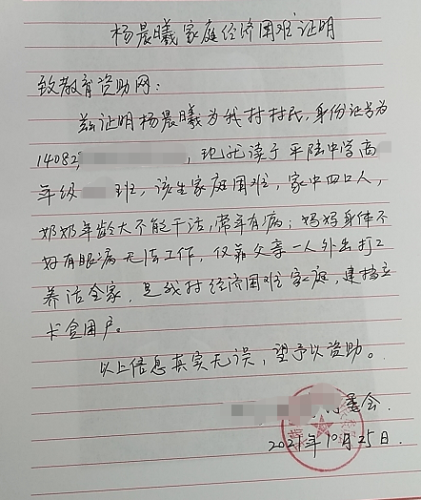 杨晨曦家庭经济困难证明
致教育资助网:
兹证明杨晨曦为我村村民,身份证号为
14082, 现就读于平陆中学高
年级 班,该生家庭困难,家中四口人,
奶奶年龄大不能干活,常年有病;妈妈身体不
好有眼病无法工作,仅靠父亲一人外出打工
养活全家,是我村经济困难家庭,建档立
卡贫困户。
以上信息真实无误,望予以资助。
委会
2021年10月25日.